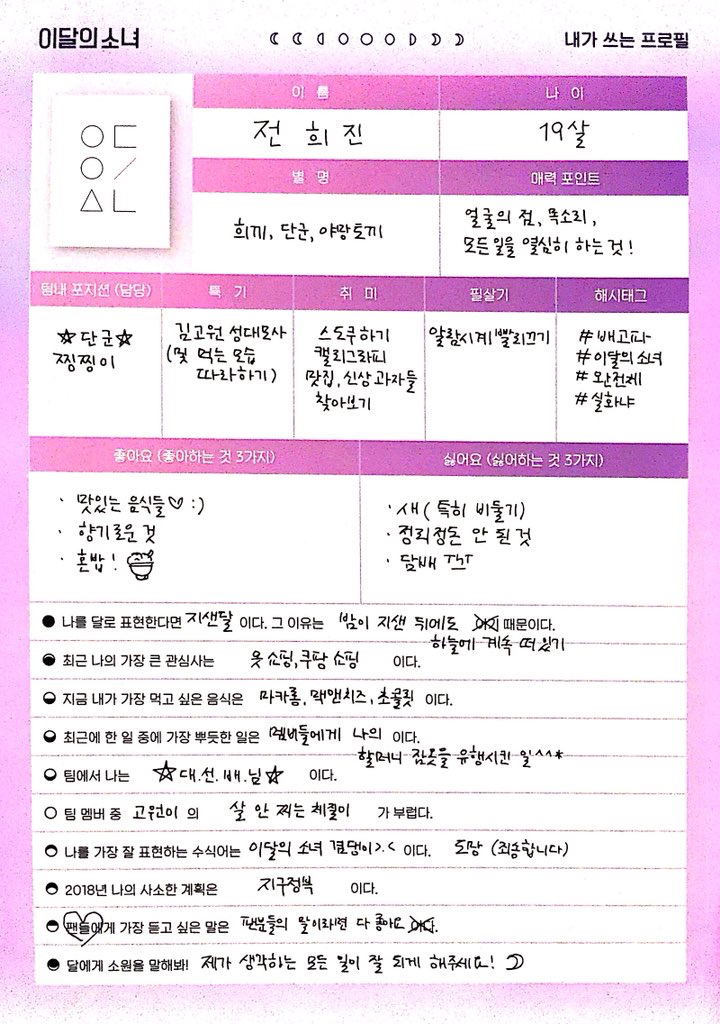 이달의 소녀
내가 쓰는 프로필
이름
나이
전 희 진
19살
별명
매력 포인트
희끼, 단군, 야망토끼
얼굴의 점, 목소리,
모든일을 열심히 하는것!
팀내 포지션 (담당)
특기
취미
필살기
해시태그
☆단군☆
찌찡이
김고원 성대모사
(뭣 먹는 모습
따라하기)
스도쿠하기
캘리그라피
맛집, 신상과자들
찾아보기
알람시계 빨리끄기
#배고파
#이달의소녀
#완전체
#실화냐
좋아요 (좋아하는 것 3가지)
싫어요 (싫어하는 것 3가지)
· 맛있는 음식들♡ :)
· 향기로운 것
· 혼밥!
· 새 (특히 비둘기)
· 정리정돈 안 된 것
· 담배
나를 달로 표현한다면 지샌달 이다. 그 이유는 밤이 지샌 뒤에도 때문이다.
하늘에 계속 떠 있기
최근 나의 가장 큰 관심사는 옷 쇼핑, 쿠팡 쇼핑 이다.
지금 내가 가장 먹고 싶은 음식은 마카롱, 맥앤치즈, 초콜릿 이다.
최근에 한 일 중에 가장 뿌듯한 일은 멤버들에게 나의 이다.
할머니 잠옷을 유행시킨 일^^*
팀에서 나는 ☆대.선.배.님☆ 이다.
팀 멤버 중 고원이 의 살 안 찌는 체질이 가 부럽다.
나를 가장 잘 표현하는 수식어는 이달의 소녀 겸댕이>.< 이다. 도망 (죄송합니다)
2018년 나의 사소한 계획은 지구정복 이다.
팬들에게 가장 듣고 싶은 말은 팬분들의 말이라면 다 좋아요
달에게 소원을 말해봐! 제가 생각하는 모든 일이 잘 되게 해주세요!